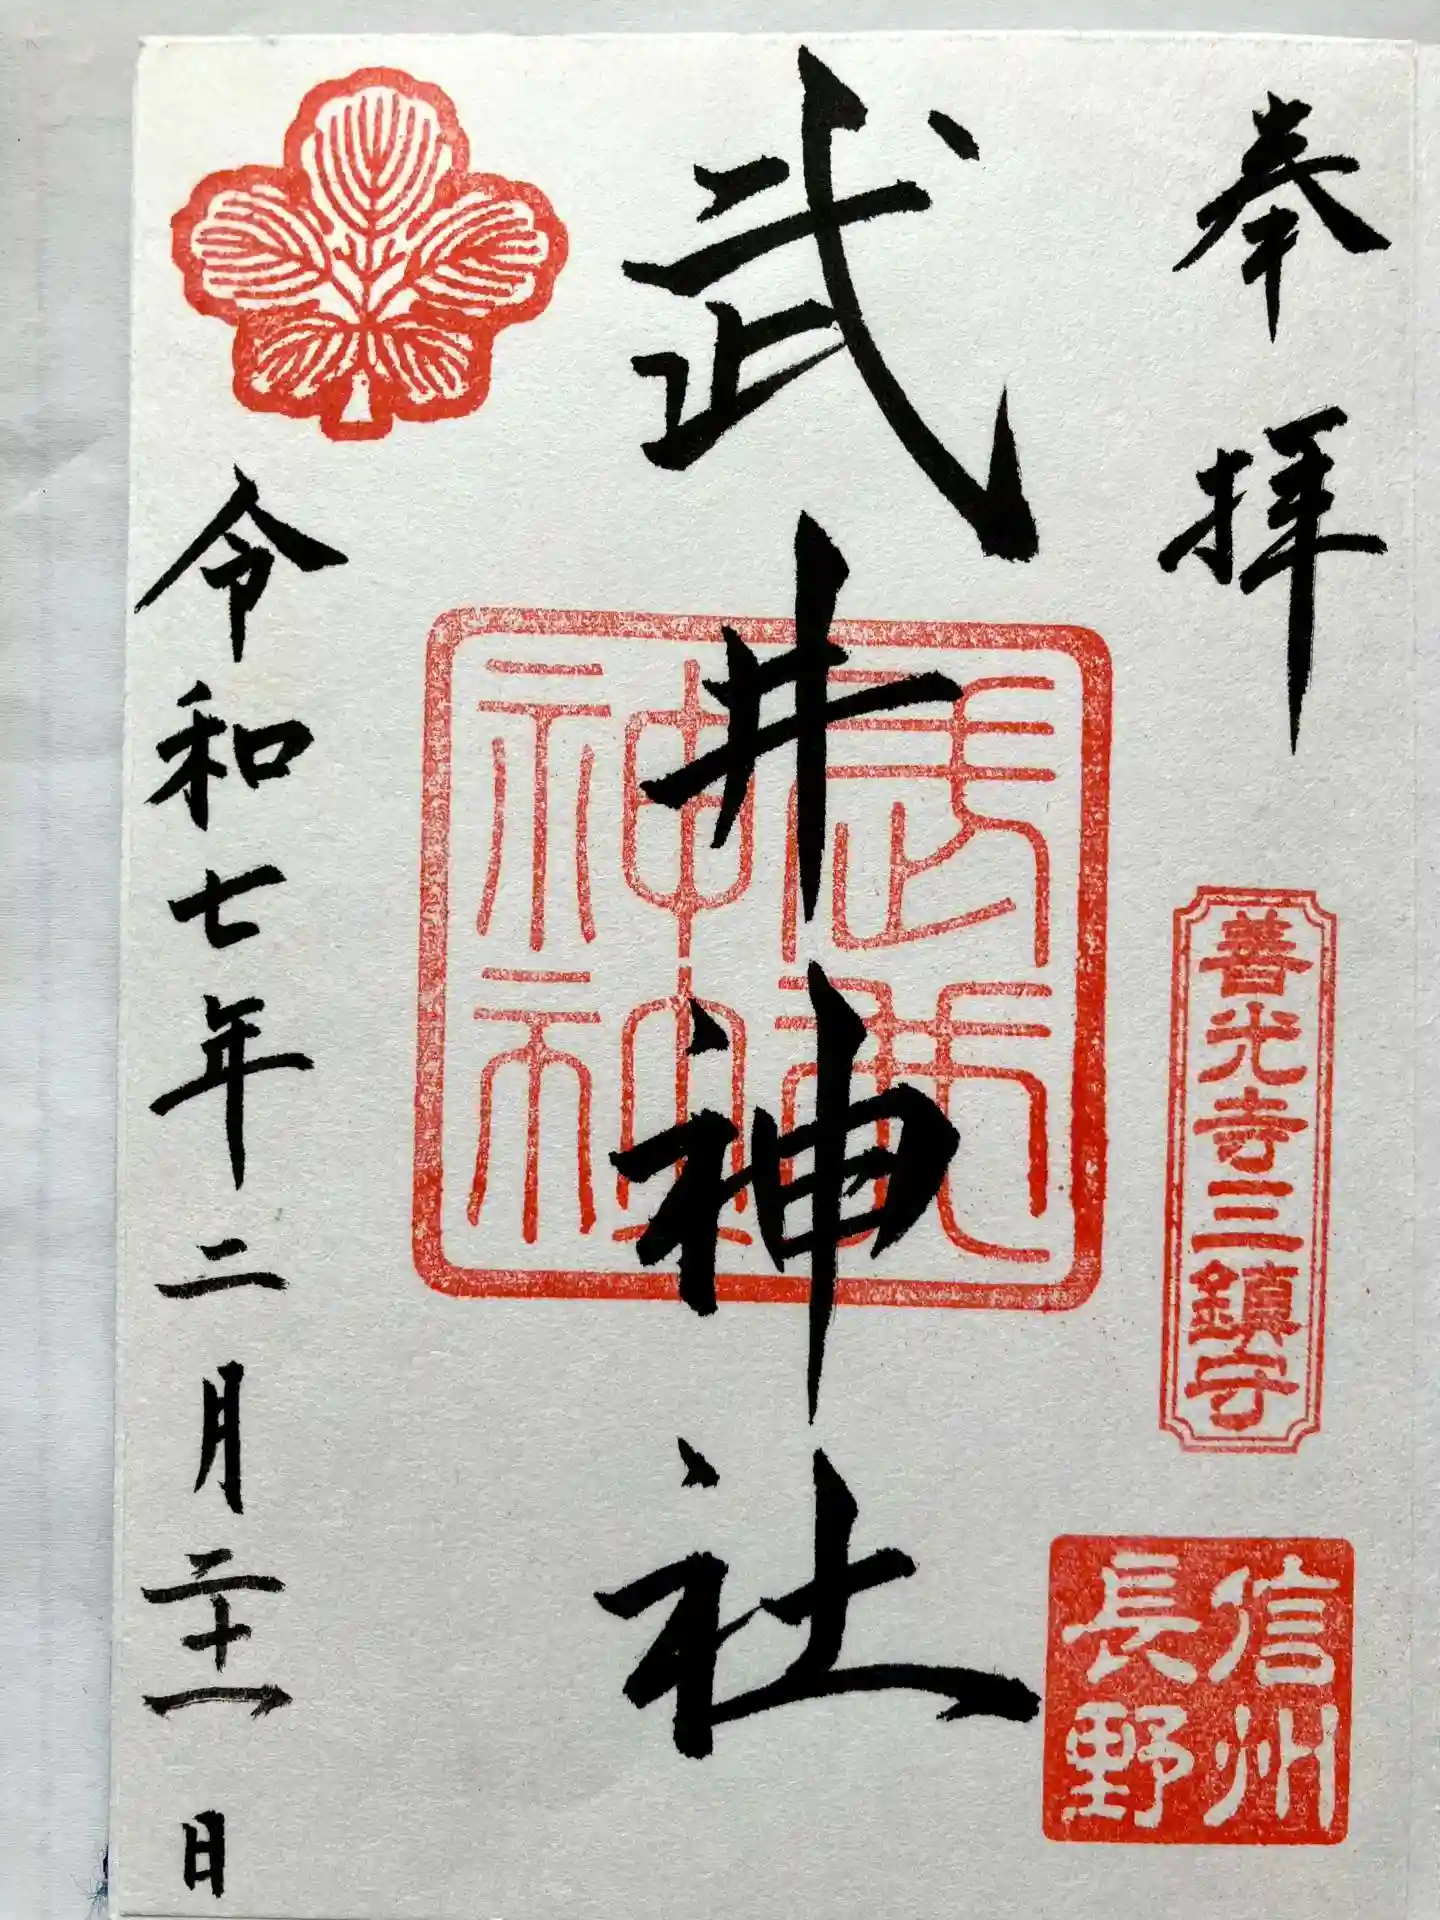 奉拝
善光寺三鎮守
信州
長野
武井神社
令和七年二月二十一日